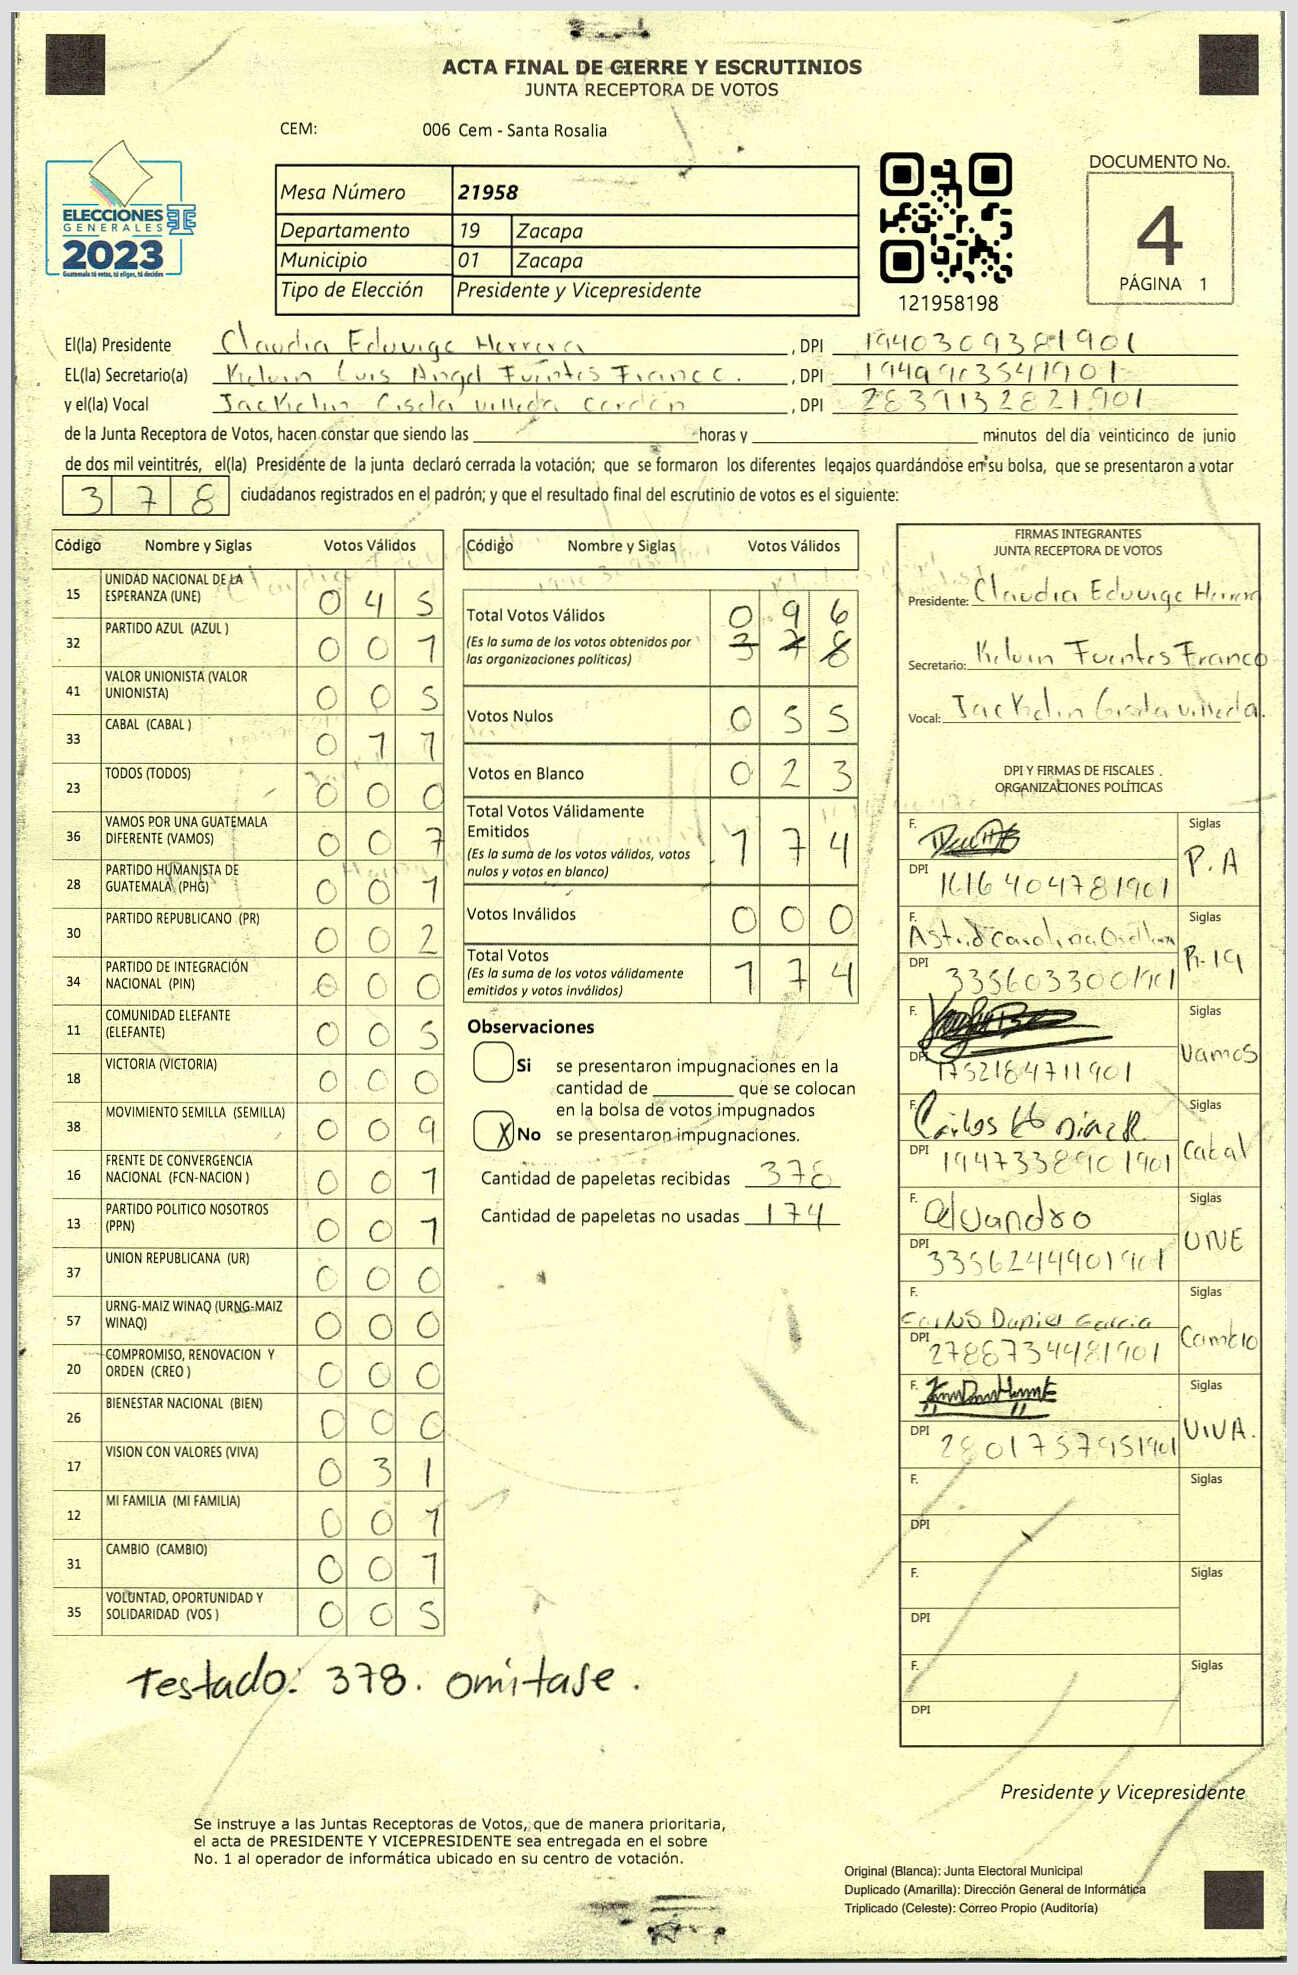 ACTA FINAL DE CIERRE Y ESCRUTINIOS
JUNTA RECEPTORA DE VOTOS
CEM: 006 Cem - Santa Rosalia
ELECCIONES
GENERALES
2023
Guatemala tú votas, tú eliges, tú decides
Mesa Número 21958
Departamento 19 Zacapa
Municipio 01 Zacapa
Tipo de Elección Presidente y Vicepresidente
121958198
DOCUMENTO No.
4
PÁGINA 1
El(la) Presidente Claudia Eduvige Herrera , DPI 1940309381901
EL(la) Secretario(a) Kelvin Luis Angel Fuentes Franco. , DPI 1949903541901
y el(la) Vocal Jackelin Gisela Villeda Cordón , DPI 2839132821901
de la Junta Receptora de Votos, hacen constar que siendo las horas y minutos del día veinticinco de junio
de dos mil veintitrés, el(la) Presidente de la junta declaró cerrada la votación; que se formaron los diferentes legajos guardándose en su bolsa, que se presentaron a votar
378 ciudadanos registrados en el padrón; y que el resultado final del escrutinio de votos es el siguiente:
Código Nombre y Siglas Votos Válidos
15 UNIDAD NACIONAL DE LA ESPERANZA (UNE) 0 4 5
32 PARTIDO AZUL (AZUL ) 0 0 1
41 VALOR UNIONISTA (VALOR UNIONISTA) 0 0 5
33 CABAL (CABAL ) 0 1 1
23 TODOS (TODOS) 0 0 0
36 VAMOS POR UNA GUATEMALA DIFERENTE (VAMOS) 0 0 7
28 PARTIDO HUMANISTA DE GUATEMALA (PHG) 0 0 1
30 PARTIDO REPUBLICANO (PR) 0 0 2
34 PARTIDO DE INTEGRACIÓN NACIONAL (PIN) 0 0 0
11 COMUNIDAD ELEFANTE (ELEFANTE) 0 0 5
18 VICTORIA (VICTORIA) 0 0 0
38 MOVIMIENTO SEMILLA (SEMILLA) 0 0 9
16 FRENTE DE CONVERGENCIA NACIONAL (FCN-NACION ) 0 0 1
13 PARTIDO POLITICO NOSOTROS (PPN) 0 0 1
37 UNION REPUBLICANA (UR) 0 0 0
57 URNG-MAIZ WINAQ (URNG-MAIZ WINAQ) 0 0 0
20 COMPROMISO, RENOVACION Y ORDEN (CREO ) 0 0 0
26 BIENESTAR NACIONAL (BIEN) 0 0 0
17 VISION CON VALORES (VIVA) 0 3 1
12 MI FAMILIA (MI FAMILIA) 0 0 1
31 CAMBIO (CAMBIO) 0 0 1
35 VOLUNTAD, OPORTUNIDAD Y SOLIDARIDAD (VOS ) 0 0 5
Testado: 378. omitase.
Código Nombre y Siglas Votos Válidos
Total Votos Válidos 0 9 6
(Es la suma de los votos obtenidos por 3 7 8
las organizaciones políticas)
Votos Nulos 0 5 5
Votos en Blanco 0 2 3
Total Votos Válidamente
Emitidos 1 7 4
(Es la suma de los votos válidos, votos
nulos y votos en blanco)
Votos Inválidos 0 0 0
Total Votos 1 7 4
(Es la suma de los votos válidamente
emitidos y votos inválidos)
Observaciones
Si se presentaron impugnaciones en la
cantidad de que se colocan
en la bolsa de votos impugnados
X No se presentaron impugnaciones.
Cantidad de papeletas recibidas 378
Cantidad de papeletas no usadas 174
FIRMAS INTEGRANTES
JUNTA RECEPTORA DE VOTOS
Presidente: Claudia Eduvige Herrera
Secretario: Kelvin Fuentes Franco
Vocal: Jackelin Gisela Villeda.
DPI Y FIRMAS DE FISCALES
ORGANIZACIONES POLÍTICAS
F. Siglas P.A
DPI 1616404781901
F. Astrid Carolina Orellana Siglas
DPI 3356033001901
F. Siglas Vamos
DPI 1752184711901
F. Carlos Siglas Cabal
DPI 1947338901901
F. Siglas UNE
DPI 3356244901901
F. Carlos Daniel Garcia Siglas Cambio
DPI 2788734481901
F. Siglas VIVA.
DPI 2801757951901
F. Siglas
DPI
F. Siglas
DPI
F. Siglas
DPI
Presidente y Vicepresidente
Se instruye a las Juntas Receptoras de Votos, que de manera prioritaria,
el acta de PRESIDENTE Y VICEPRESIDENTE sea entregada en el sobre
No. 1 al operador de informática ubicado en su centro de votación.
Original (Blanca): Junta Electoral Municipal
Duplicado (Amarilla): Dirección General de Informática
Triplicado (Celeste): Correo Propio (Auditoría)